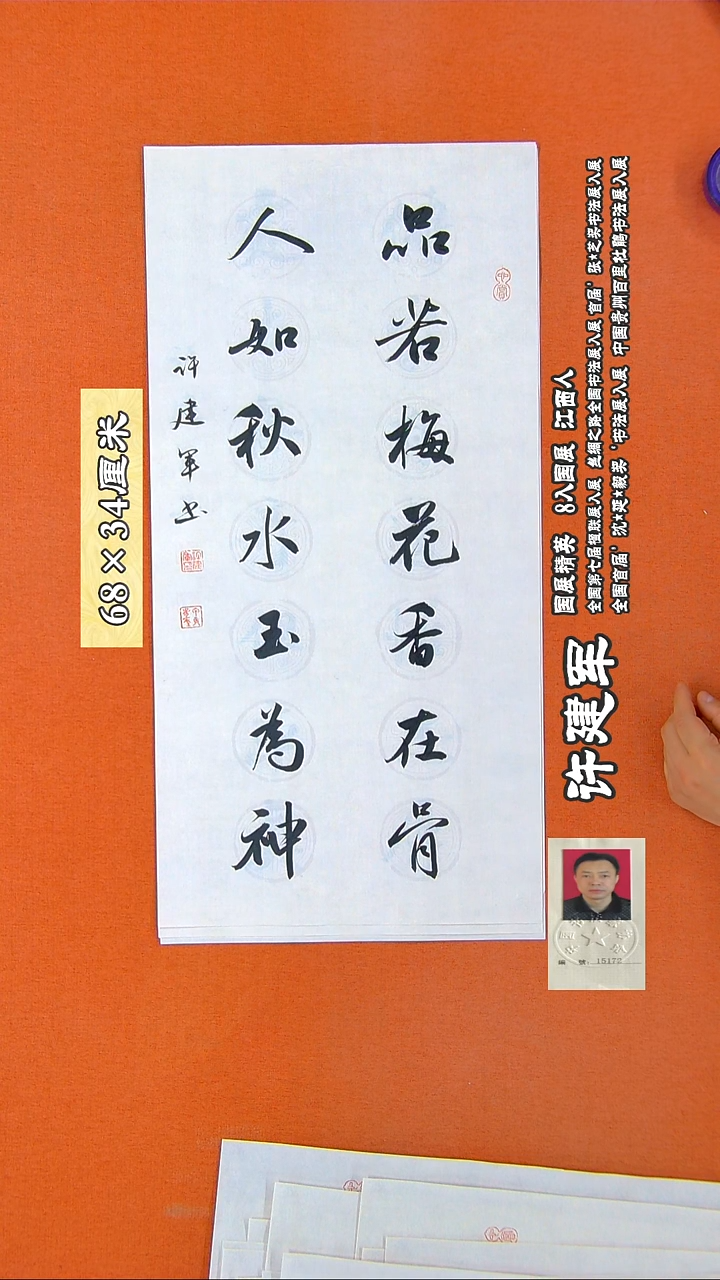 品若梅花香在骨
人如秋水玉為神
许建军书
68×34厘米
国展精英 8入国展 江西人
全国第七届楹联展入展 丝绸之路全国书法展入展 首届‘张★芝奖书法展入展
全国首届’沈★延★毅奖‘书法展入展 中国贵州百里杜鹃书法展入展
许建军
编 号: 15172